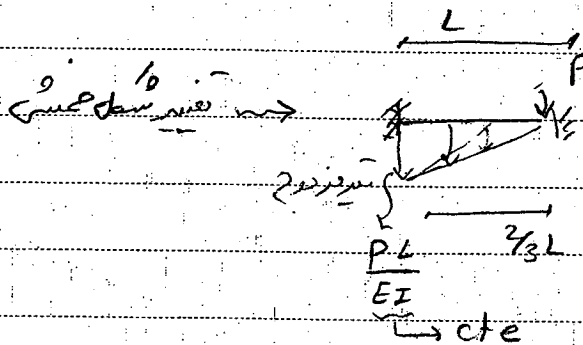 L
P
تغییر شکل خمشی
تیر مزدوج
2/3 L
PL
EI
cte